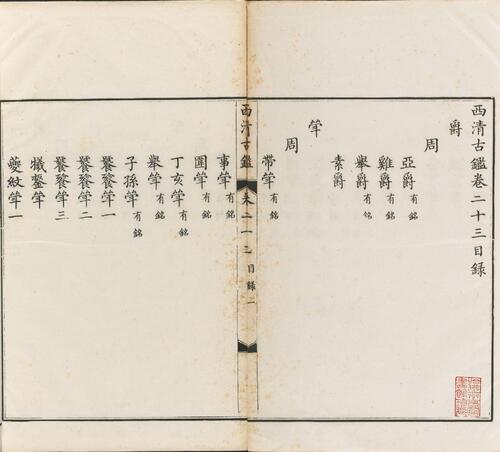 西清古鑑卷二十三目録
爵
周
亞爵有銘
雞爵有銘
舉爵有銘
素爵
斝
周
帶斝有銘
西清古鑑
卷二十三
目録
二
事斝有銘
圍斝有銘
丁亥斝有銘
舉斝有銘
子孫斝有銘
饕餮斝一
饕餮斝二
饕餮斝三
犧鋬斝
夔紋斝一